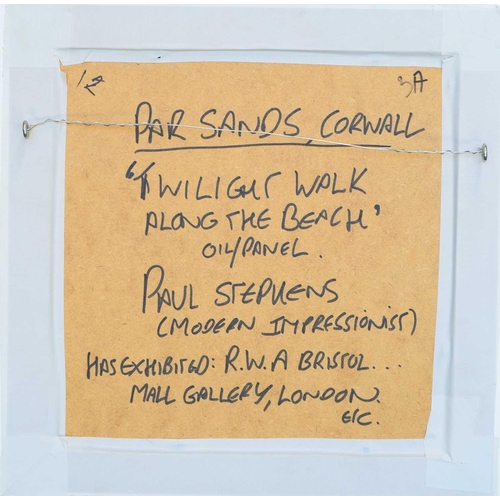 12 3A
PAR SANDS, CORNWALL
"TWILIGHT WALK
ALONG THE BEACH"
OIL/PANEL.
PAUL STEPHENS
(MODERN IMPRESSIONIST)
HAS EXHIBITED: R.W.A BRISTOL...
MALL GALLERY, LONDON.
ETC.